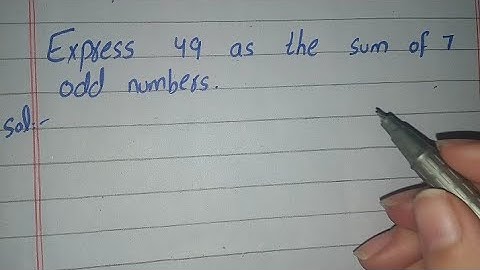 Express 49 as the sum of 7
odd numbers.
Sol:-